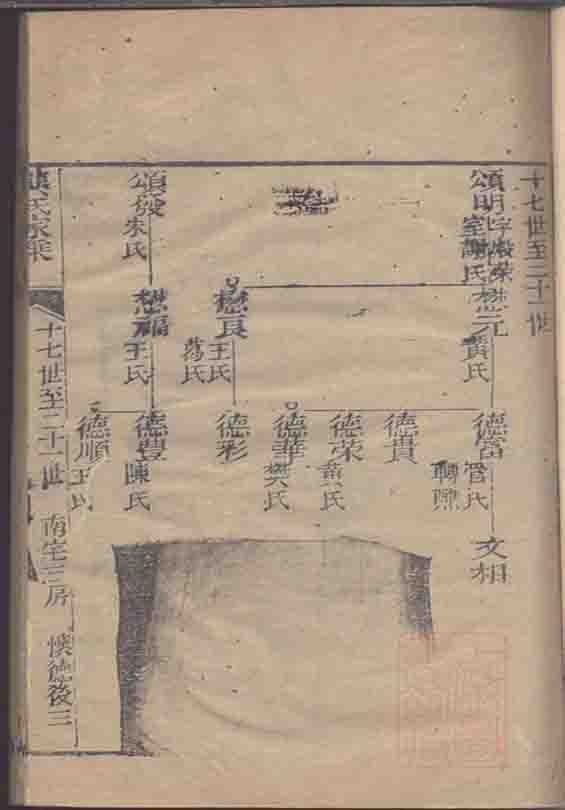 十七世至二十一世
頌明字毅榮
室謝氏
懋元
黃氏
德富
管氏
轉陳
文相
德貴
德榮
黃氏
德華
樊氏
懋良
王氏
蕩氏
德彩
頌發
朱氏
懋福
王氏
德豐
陳氏
德順
王氏
氏家乘
十七世至二十一世
南宅三房
懷德後三